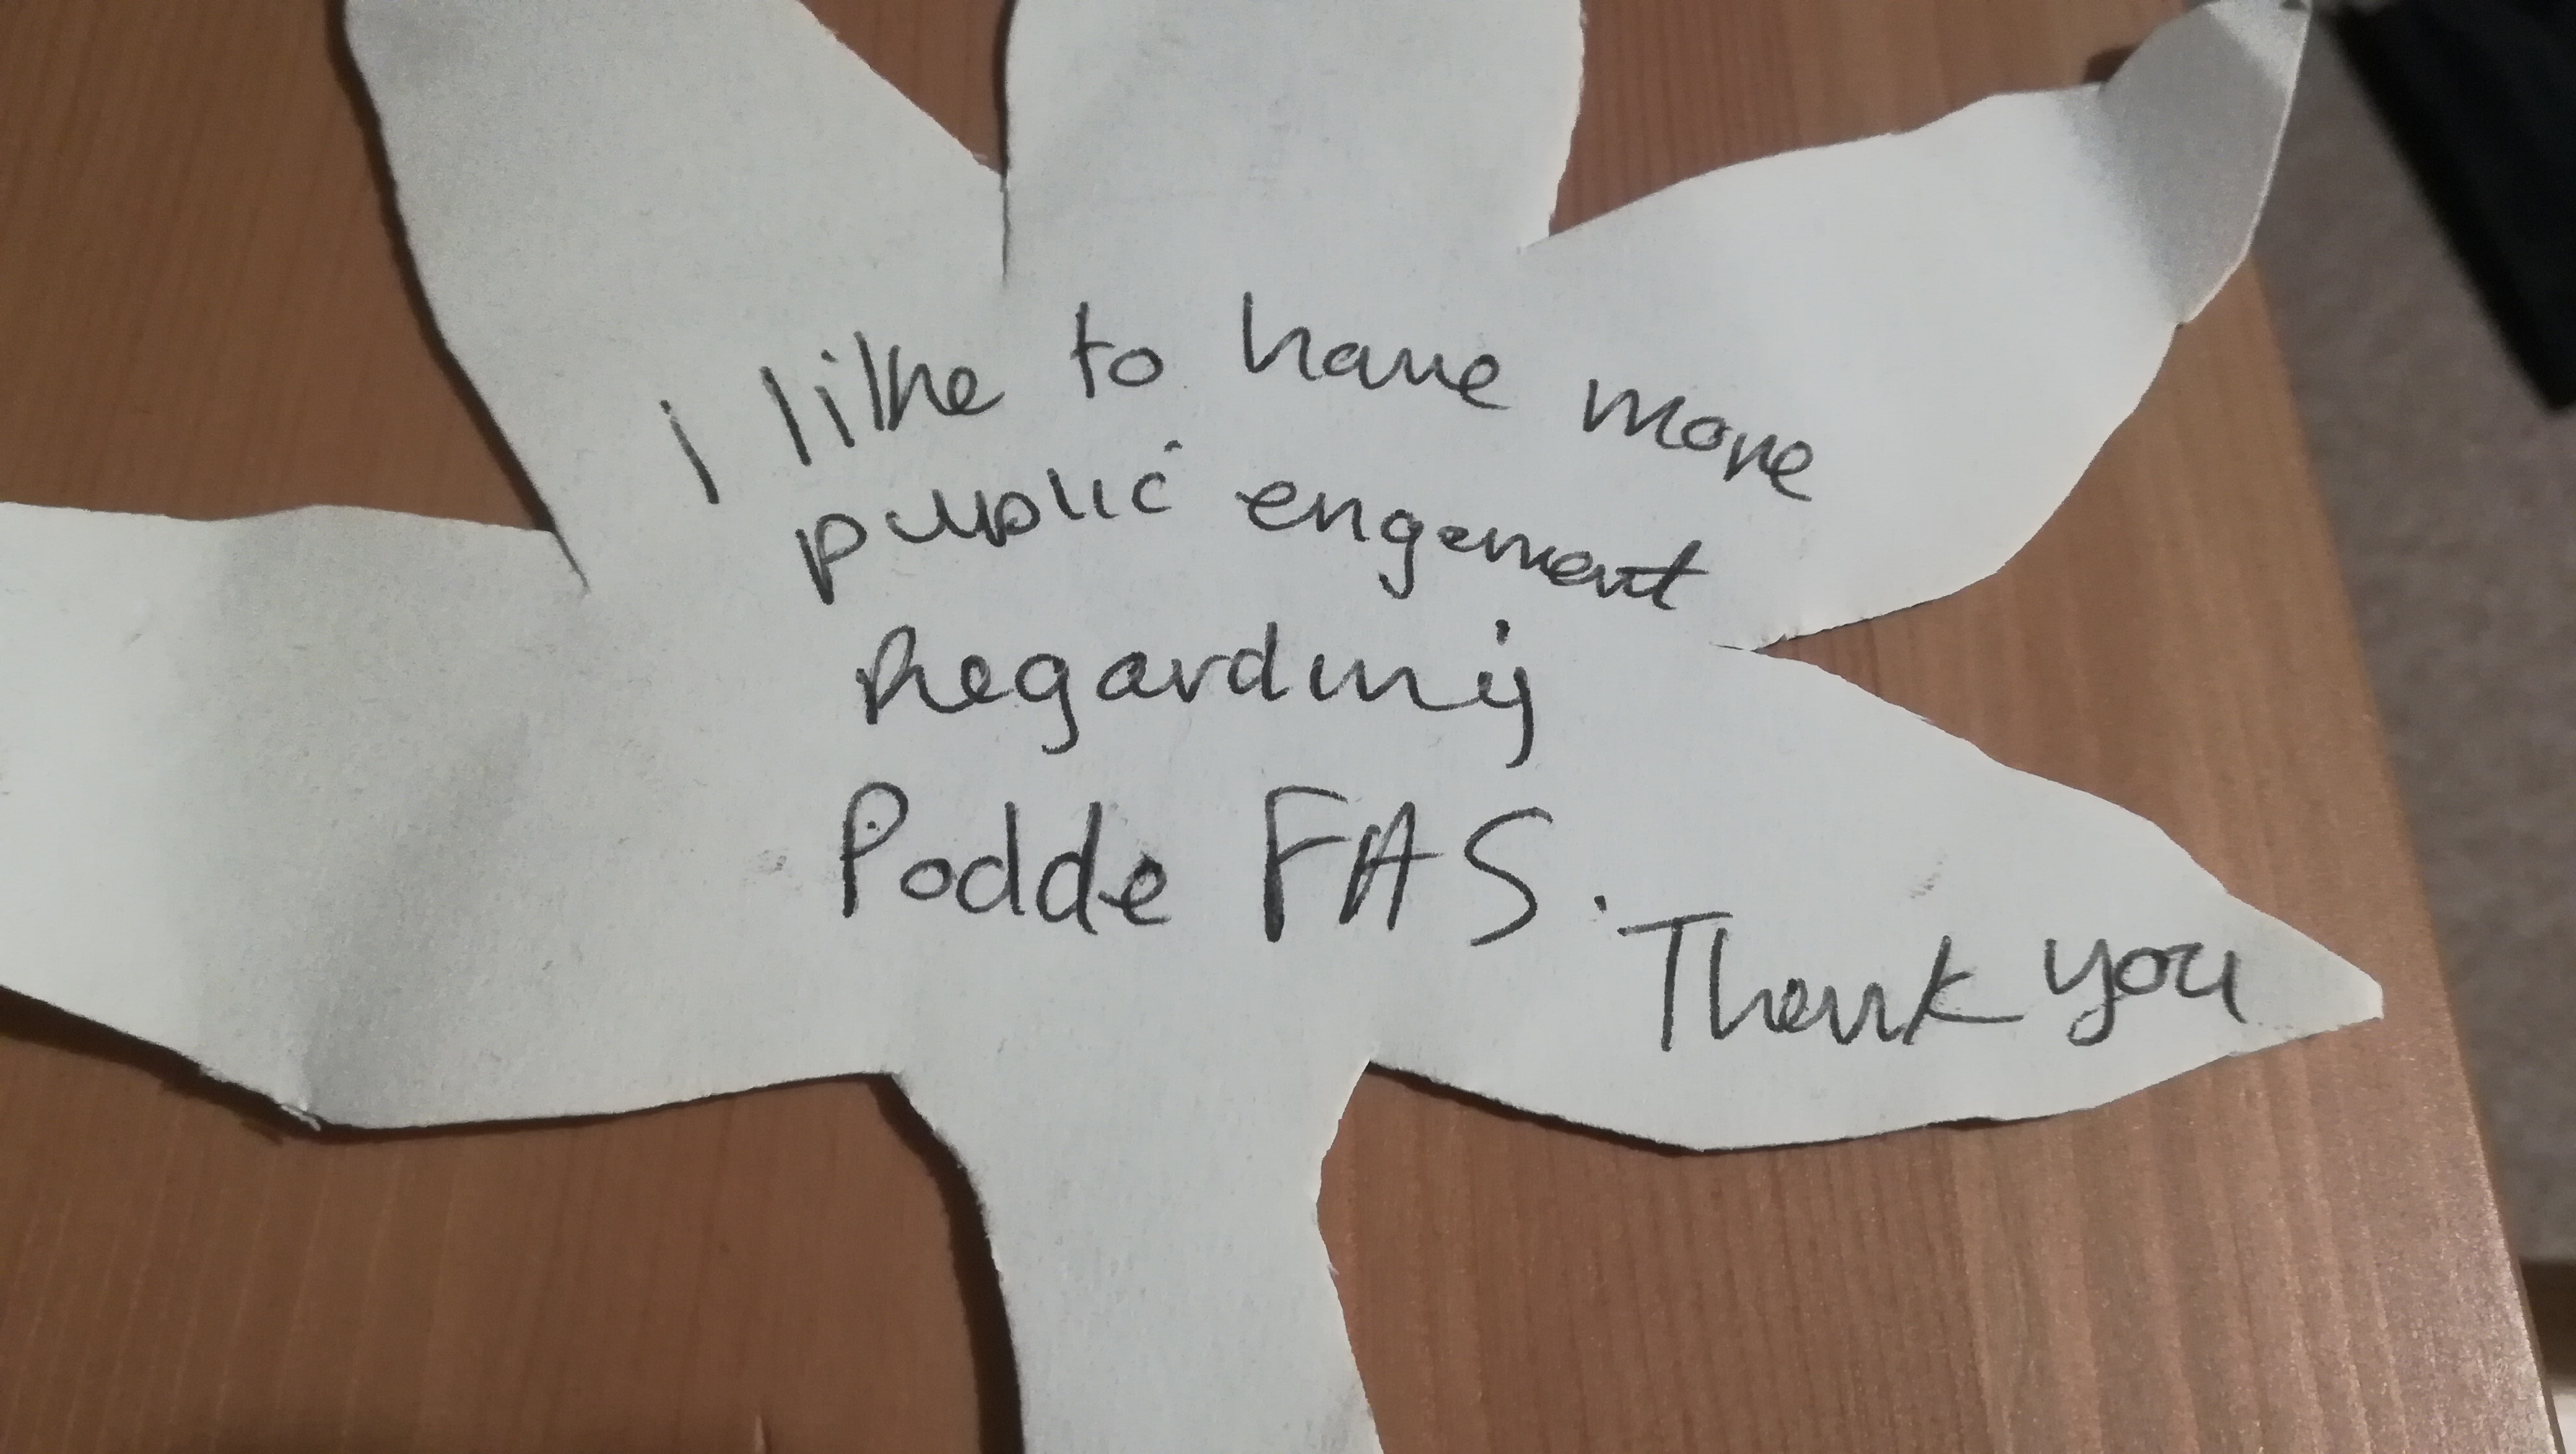 i like to have more
public engement
Regarding
Podde FAS.
Thank you